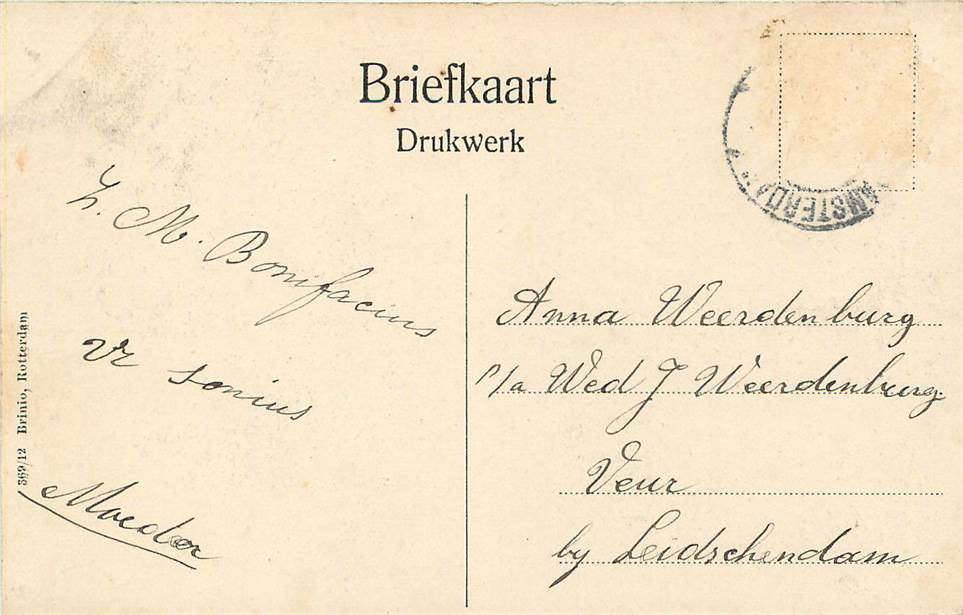 Briefkaart
Drukwerk
AMSTERDA
h. M. Bonifacius
Vr sonius
Moeder
Anna Weerdenburg
p/a Wed J Weerdenburg.
Veur
by Leidschendam
369/12 Brinio, Rotterdam